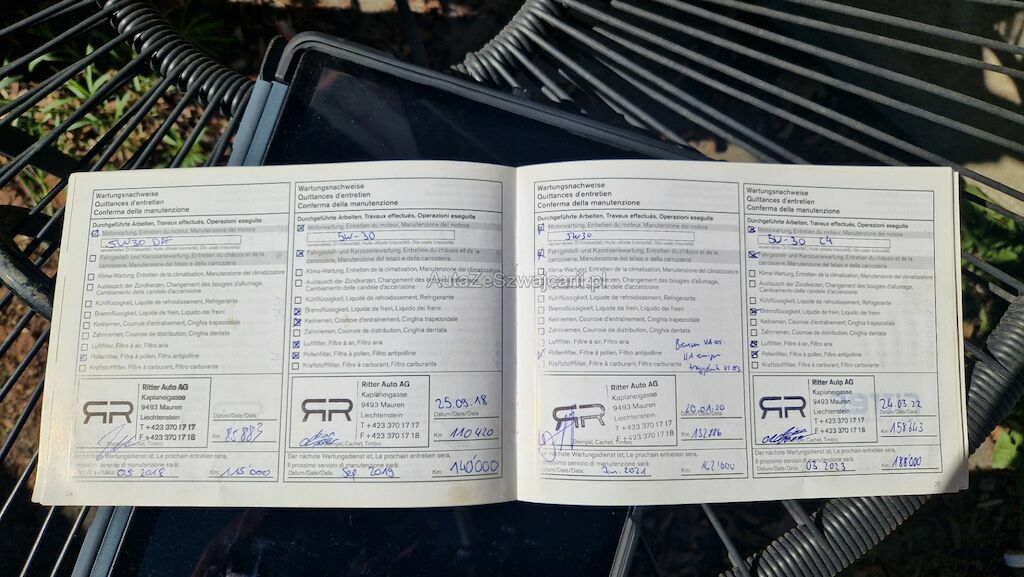 Wartungsnachweise
Quittances d'entretien
Conferma della manutenzione
Durchgeführte Arbeiten, Travaux effectués, Operazioni eseguite
Motorwartung, Entretien du moteur, Manutenzione del motore
5W30
verwendetes Öl (Viskosität), Huile utilisée (viscosité), Olio usato (viscosità)
Fahrgestell- und Karosseriewartung, Entretien du châssis et de la
carrosserie, Manutenzione del telaio e della carrozzeria
Klima-Wartung, Entretien de la climatisation, Manutenzione del climatizzatore
Austausch der Zündkerzen, Changement des bougies d'allumage,
Cambiamento delle candele d'accensione
Kühlflüssigkeit, Liquide de refroidissement, Refrigerante
Bremsflüssigkeit, Liquide de frein, Liquido dei freni
Keilriemen, Courroie d'entraînement, Cinghia trapezoidale
Zahnriemen, Courroie de distribution, Cinghia dentata
Luftfilter, Filtre à air, Filtro aria
Pollenfilter, Filtre à pollen, Filtro antipolline
Kraftstofffilter, Filtre à carburant, Filtro carburante
RR
Ritter Auto AG
Kaplaneigasse
9493 Mauren
Liechtenstein
T +423 370 17 17
F +423 370 17 18
Datum/Date/Data
Stempel, Cachet, Timbro
Km: 85883
Der nächste Wartungsdienst ist, Le prochain entretien sera,
Il prossimo servizio di manutenzione sarà:
Datum/Date/Data: 05 2018 Km: 115000
24
Wartungsnachweise
Quittances d'entretien
Conferma della manutenzione
Durchgeführte Arbeiten, Travaux effectués, Operazioni eseguite
Motorwartung, Entretien du moteur, Manutenzione del motore
5W-30
verwendetes Öl (Viskosität), Huile utilisée (viscosité), Olio usato (viscosità)
Fahrgestell- und Karosseriewartung, Entretien du châssis et de la
carrosserie, Manutenzione del telaio e della carrozzeria
Klima-Wartung, Entretien de la climatisation, Manutenzione del climatizzatore
Austausch der Zündkerzen, Changement des bougies d'allumage,
Cambiamento delle candele d'accensione
Kühlflüssigkeit, Liquide de refroidissement, Refrigerante
Bremsflüssigkeit, Liquide de frein, Liquido dei freni
Keilriemen, Courroie d'entraînement, Cinghia trapezoidale
Zahnriemen, Courroie de distribution, Cinghia dentata
Luftfilter, Filtre à air, Filtro aria
Pollenfilter, Filtre à pollen, Filtro antipolline
Kraftstofffilter, Filtre à carburant, Filtro carburante
RR
Ritter Auto AG
Kaplaneigasse
9493 Mauren
Liechtenstein
T +423 370 17 17
F +423 370 17 18
25.09.18
Datum/Date/Data
Km: 110420
Der nächste Wartungsdienst ist, Le prochain entretien sera,
Il prossimo servizio di manutenzione sarà:
Datum/Date/Data: Sep. 2019 Km: 140'000
Wartungsnachweise
Quittances d'entretien
Conferma della manutenzione
Durchgeführte Arbeiten, Travaux effectués, Operazioni eseguite
Motorwartung, Entretien du moteur, Manutenzione del motore
5W30
verwendetes Öl (Viskosität), Huile utilisée (viscosité), Olio usato (viscosità)
Fahrgestell- und Karosseriewartung, Entretien du châssis et de la
carrosserie, Manutenzione del telaio e della carrozzeria
Klima-Wartung, Entretien de la climatisation, Manutenzione del climatizzatore
Austausch der Zündkerzen, Changement des bougies d'allumage,
Cambiamento delle candele d'accensione
Kühlflüssigkeit, Liquide de refroidissement, Refrigerante
Bremsflüssigkeit, Liquide de frein, Liquido dei freni
Keilriemen, Courroie d'entraînement, Cinghia trapezoidale
Zahnriemen, Courroie de distribution, Cinghia dentata
Luftfilter, Filtre à air, Filtro aria
Pollenfilter, Filtre à pollen, Filtro antipolline
Kraftstofffilter, Filtre à carburant, Filtro carburante
Bremsen VA
HA
RR
Ritter Auto AG
Kaplaneigasse
9493 Mauren
Liechtenstein
T +423 370 17 17
F +423 370 17 18
20.01.20
Datum/Date/Data
Stempel, Cachet, Timbro
Km: 132886
Der nächste Wartungsdienst ist, Le prochain entretien sera,
Il prossimo servizio di manutenzione sarà:
Datum/Date/Data: Jan. 2021 Km: 162'000
Wartungsnachweise
Quittances d'entretien
Conferma della manutenzione
Durchgeführte Arbeiten, Travaux effectués, Operazioni eseguite
Motorwartung, Entretien du moteur, Manutenzione del motore
5W-30 C4
verwendetes Öl (Viskosität), Huile utilisée (viscosité), Olio usato (viscosità)
Fahrgestell- und Karosseriewartung, Entretien du châssis et de la
carrosserie, Manutenzione del telaio e della carrozzeria
Klima-Wartung, Entretien de la climatisation, Manutenzione del climatizzatore
Austausch der Zündkerzen, Changement des bougies d'allumage,
Cambiamento delle candele d'accensione
Kühlflüssigkeit, Liquide de refroidissement, Refrigerante
Bremsflüssigkeit, Liquide de frein, Liquido dei freni
Keilriemen, Courroie d'entraînement, Cinghia trapezoidale
Zahnriemen, Courroie de distribution, Cinghia dentata
Luftfilter, Filtre à air, Filtro aria
Pollenfilter, Filtre à pollen, Filtro antipolline
Kraftstofffilter, Filtre à carburant, Filtro carburante
RR
Ritter Auto AG
Kaplaneigasse
9493 Mauren
Liechtenstein
T +423 370 17 17
F +423 370 17 18
24.03.22
Datum/Date/Data
Stempel, Cachet, Timbro
Km: 158643
Der nächste Wartungsdienst ist, Le prochain entretien sera,
Il prossimo servizio di manutenzione sarà:
Datum/Date/Data: 03.2023 Km: 188'000
25
AutaZeSzwajcarii.pl